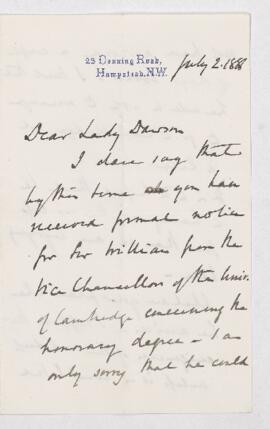 25 Denning Road,
Hampstead. N.W.
July 2. 1888
Dear Lady Dawson
I dare say that
by this time you have
received formal notice
for Sir William from the
Vice Chancellor of the Univ.
of Cambridge concerning the
honorary degree - I am
only sorry that he could